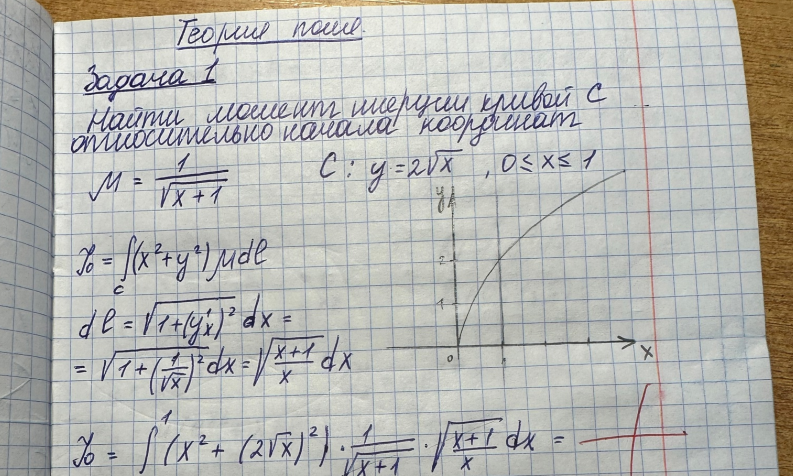 Теория поле.
Задача 1
Найти момент инерции кривой C
относительно начала координат
M = 1/√(x+1)    C: y = 2√x , 0 ≤ x ≤ 1
y
2
1
0
x
J₀ = ∫_C (x² + y²) μ dl
dl = √(1+(y'ₓ)²) dx =
= √(1+(1/√x)²) dx = √((x+1)/x) dx
J₀ = ∫¹ (x² + (2√x)²) · 1/√(x+1) · √((x+1)/x) dx =